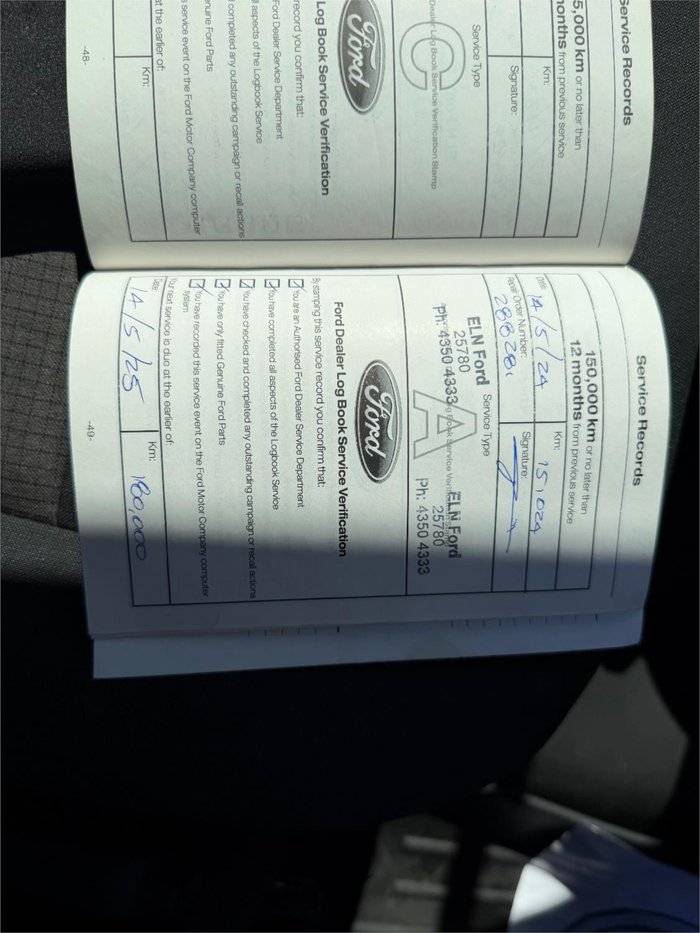 Service Records
5,000 km or no later than
months from previous service
Km:
Signature:
Service Type
C
Dealer Log Book Service Verification Stamp
Ford
Log Book Service Verification
record you confirm that:
Ford Dealer Service Department
ll aspects of the Logbook Service
d completed any outstanding campaign or recall actions
enuine Ford Parts
s service event on the Ford Motor Company computer
at the earlier of:
Km:
-48-
Service Records
150,000 km or no later than
12 months from previous service
Date: 14/5/24
Km: 151024
Repair Order Number:
288281
Signature:
Service Type
A
ELN Ford
25780
Ph: 4350 4333
ELN Ford
25780
Ph: 4350 4333
Ford
Ford Dealer Log Book Service Verification
By stamping this service record you confirm that:
You are an Authorised Ford Dealer Service Department
You have completed all aspects of the Logbook Service
You have checked and completed any outstanding campaign or recall actions
You have only fitted Genuine Ford Parts
You have recorded this service event on the Ford Motor Company computer
system
Your next service is due at the earlier of:
Date: 14/5/25
Km: 180,000
-49-